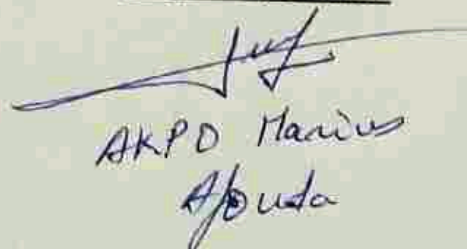 AKPO Marius
Afouda